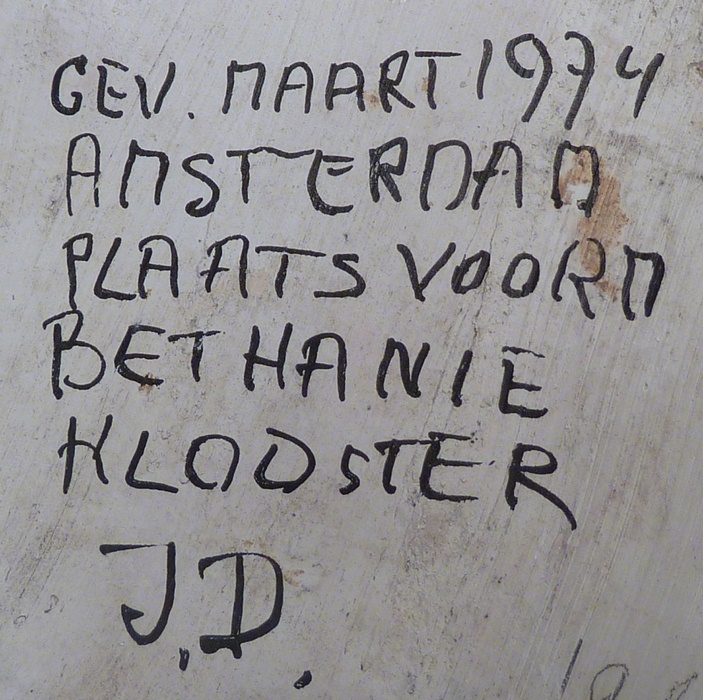 GEV. MAART 1974
AMSTERDAM
PLAATS VOORM
BETHANIE
KLOOSTER
J.D.